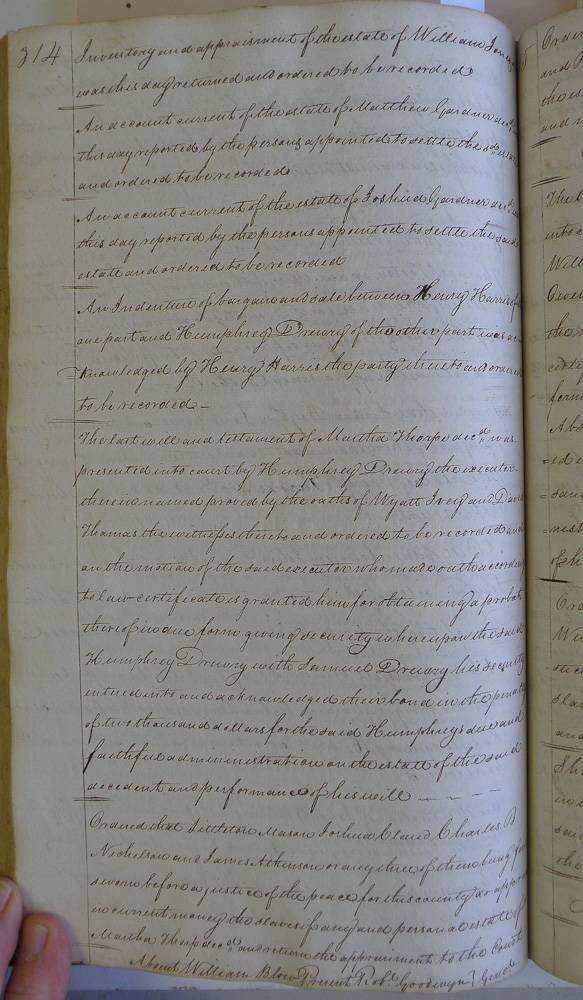 314
Inventory and appraisment of the estate of William Jones
was this day returned and ordered to be recorded
An account current of the estate of Matthew Gardner decd. was
this day reported by the persons appointed to settle the sd. estate
and ordered to be recorded
An account current of the estate of Joshua Gardner decd. was
this day reported by the persons appointed to settle the said
estate and ordered to be recorded
An Indenture of bargain and sale between Henry Harris of the
one part and Humphrey Drewry of the other part was ac
=knowledged by Henry Harris the party thereto and ordered
to be recorded —
The last will and testament of Martha Thorpe decd. was
presented into court by Humphrey Drewry the executor
therein named proved by the oaths of Wyatt Ivey and David
Thomas the witnesses thereto and ordered to be recorded and
on the motion of the said executor who made oath according
to law certificate is granted him for obtaining a probate
thereof in due form giving security whereupon the said
Humphrey Drewry with Samuel Drewry his security
entred into and acknowledged their bond in the penalty
of two thousand dollars for the said Humphreys due and
faithful administration on the estate of the said
decedent and performance of his will — — —
Ordered that Littleton Mason Joshua Claud Charles B
Nicholson and James Atkinson or any three of them being first
sworn before a justice of the peace for this county do appraise
in current money the slaves if any and personal estate of
Martha Thorp decd. and return the appraisment to the Court
Absent William Blow Present Robt. Goodwyn
Order
and
the es
and
The
into c
Will
the
certi
form
Abs
=ed
=ness
of h
Ord
Wi
sla
and
Sh
in
sai
the